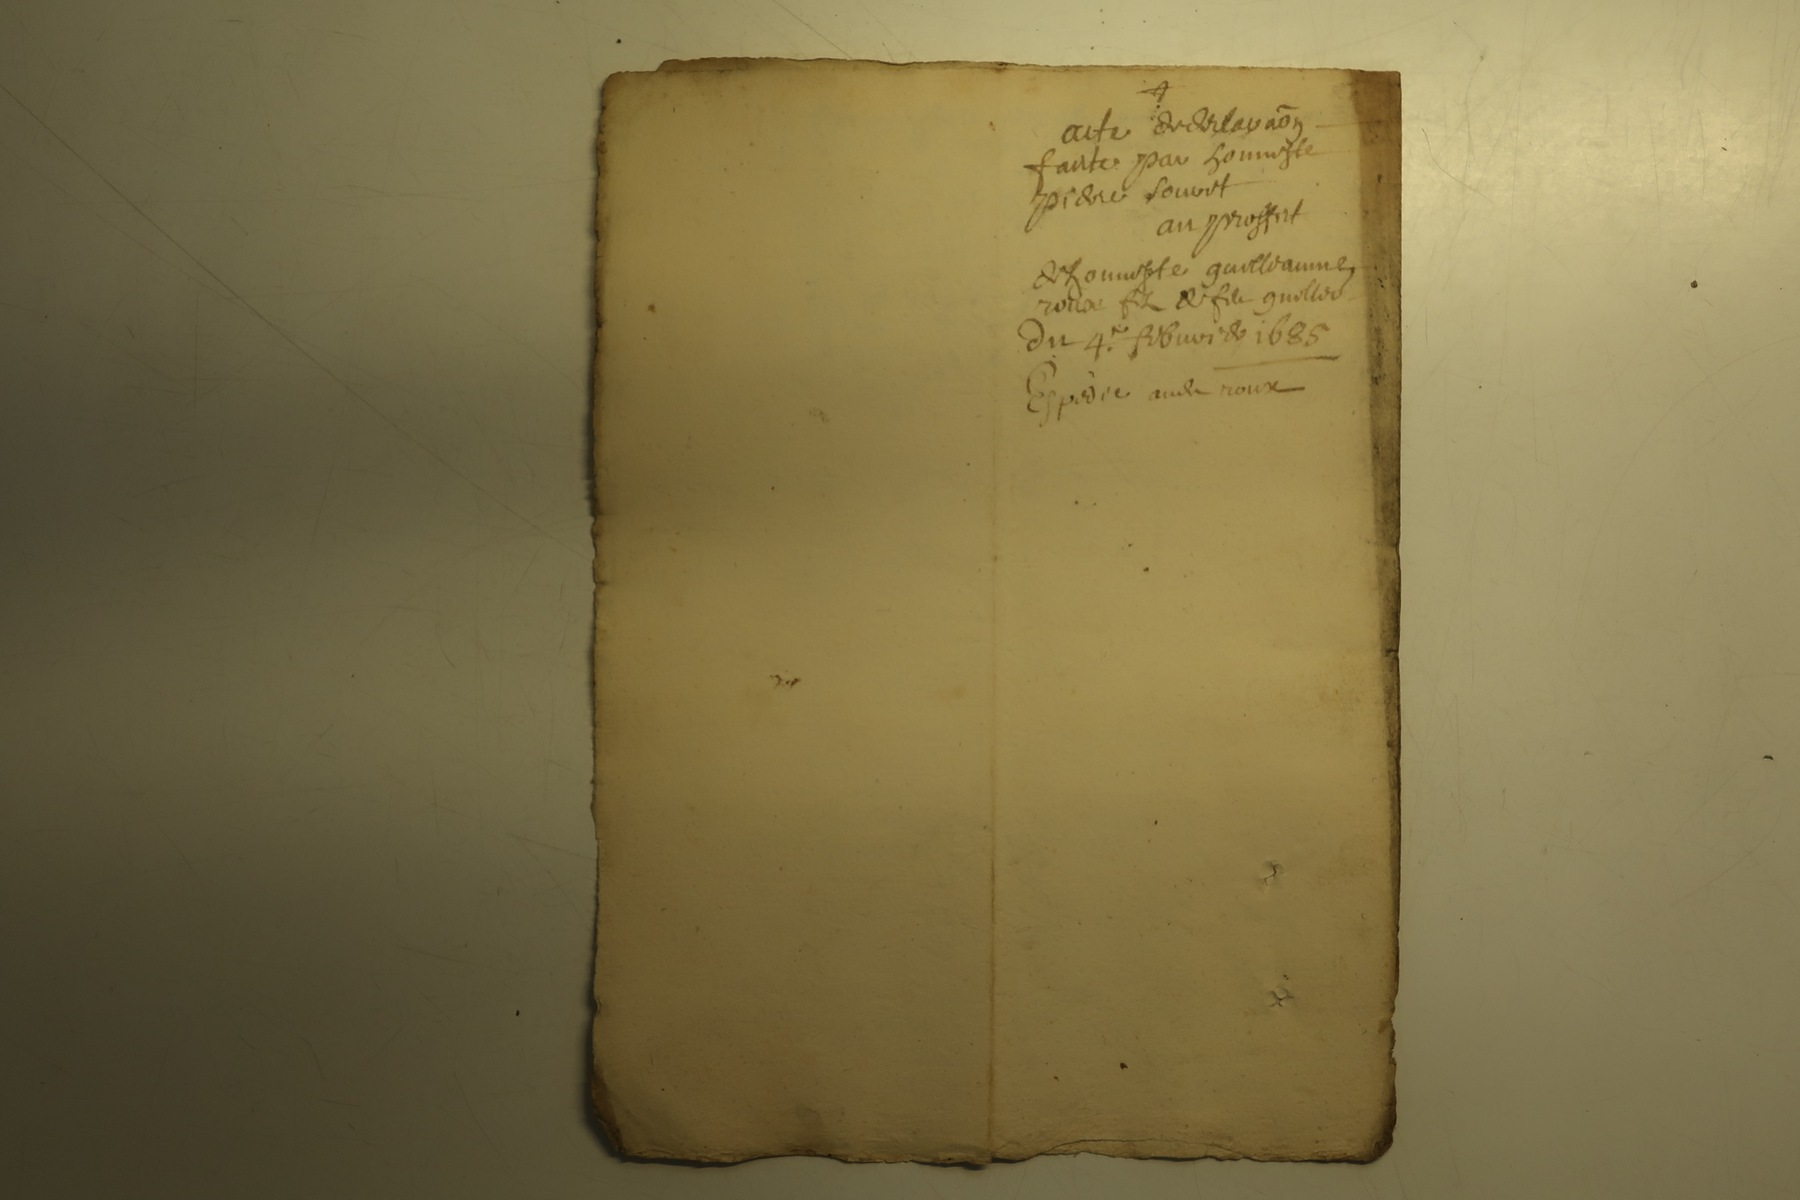 acte de declaraõn
faite par honneste
pierre Louuet
au proffit
de honneste guilleaume
roux filz de feu guilleo
Du 4.e febvrier 1685
Expediée audit roux